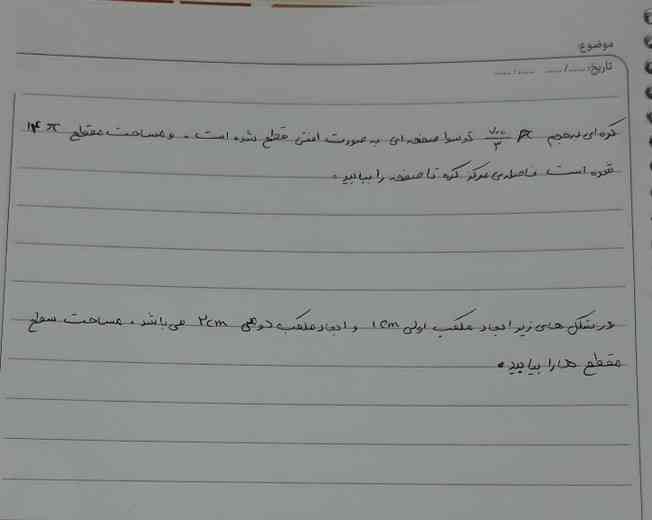 موضوع:
تاریخ: ..../..../....
کره‌ای به حجم ۷۰۰/۳ π توسط صفحه‌ای به صورت افقی قطع شده است. و مساحت مقطع ۱۴ π
شده است فاصله‌ی مرکز کره تا صفحه را بیابید.
در شکل های زیر ابعاد مکعب اولی ۱cm و ابعاد مکعب دومی ۲cm می باشد. مساحت سطح
مقطع ها را بیابید.